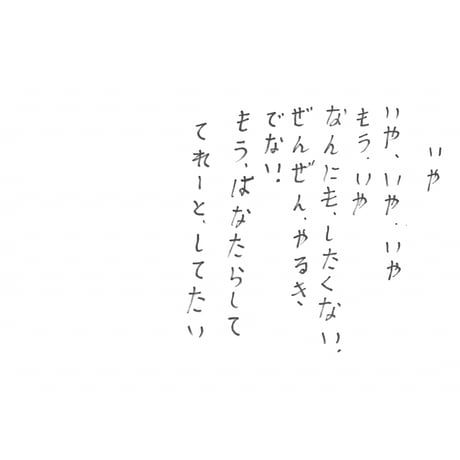 いや
いや、いや、いや
もう、いや
なんにも、したくない、
ぜんぜん、やるき、
でない！
もう、はなたらして
てれーと、してたい